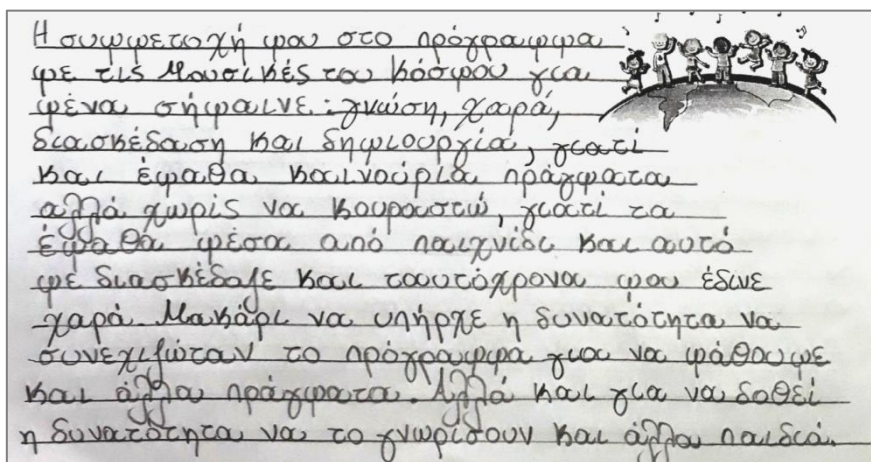 Η συμμετοχή μου στο πρόγραμμα
με τις Μουσικές του Κόσμου για
μένα σήμαινε: γνώση, χαρά,
διασκέδαση και δημιουργία, γιατί
και έμαθα καινούρια πράγματα
αλλά χωρίς να κουραστώ, γιατί τα
έμαθα μέσα από παιχνίδι και αυτό
με διασκέδαζε και ταυτόχρονα μου έδινε
χαρά. Μακάρι να υπήρχε η δυνατότητα να
συνεχιζώταν το πρόγραμμα για να μάθουμε
και άλλα πράγματα. Αλλά και για να δοθεί
η δυνατότητα να το γνωρίσουν και άλλα παιδιά.